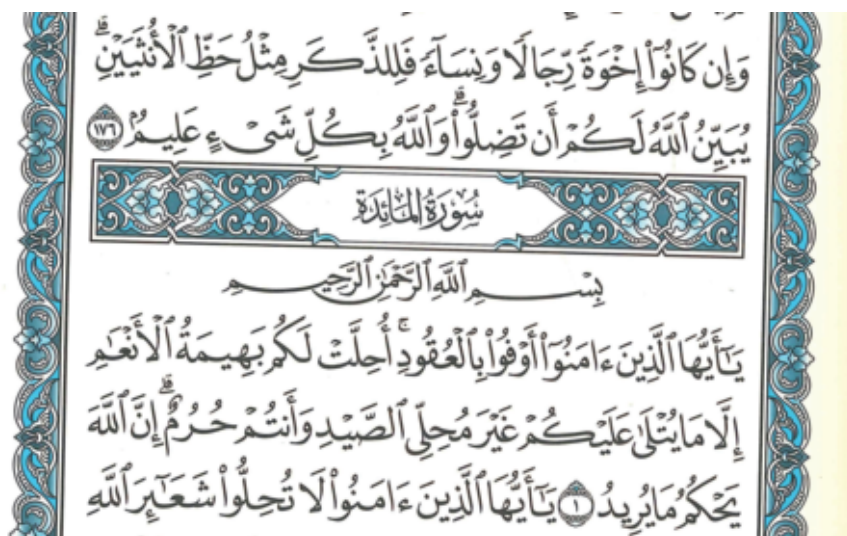 وَإِن كَانُوٓاْ إِخۡوَةٗ رِّجَالٗا وَنِسَآءٗ فَلِلذَّكَرِ مِثۡلُ حَظِّ ٱلۡأُنثَيَيۡنِۗ
يُبَيِّنُ ٱللَّهُ لَكُمۡ أَن تَضِلُّواْۗ وَٱللَّهُ بِكُلِّ شَيۡءٍ عَلِيمُۢ ١٧٦
سُورَةُ المَائِدَةِ
بِسۡمِ ٱللَّهِ ٱلرَّحۡمَٰنِ ٱلرَّحِيمِ
يَٰٓأَيُّهَا ٱلَّذِينَ ءَامَنُوٓاْ أَوۡفُواْ بِٱلۡعُقُودِۚ أُحِلَّتۡ لَكُم بَهِيمَةُ ٱلۡأَنۡعَٰمِ
إِلَّا مَا يُتۡلَىٰ عَلَيۡكُمۡ غَيۡرَ مُحِلِّي ٱلصَّيۡدِ وَأَنتُمۡ حُرُمٌۗ إِنَّ ٱللَّهَ
يَحۡكُمُ مَا يُرِيدُ ١ يَٰٓأَيُّهَا ٱلَّذِينَ ءَامَنُواْ لَا تُحِلُّواْ شَعَٰٓئِرَ ٱللَّهِ